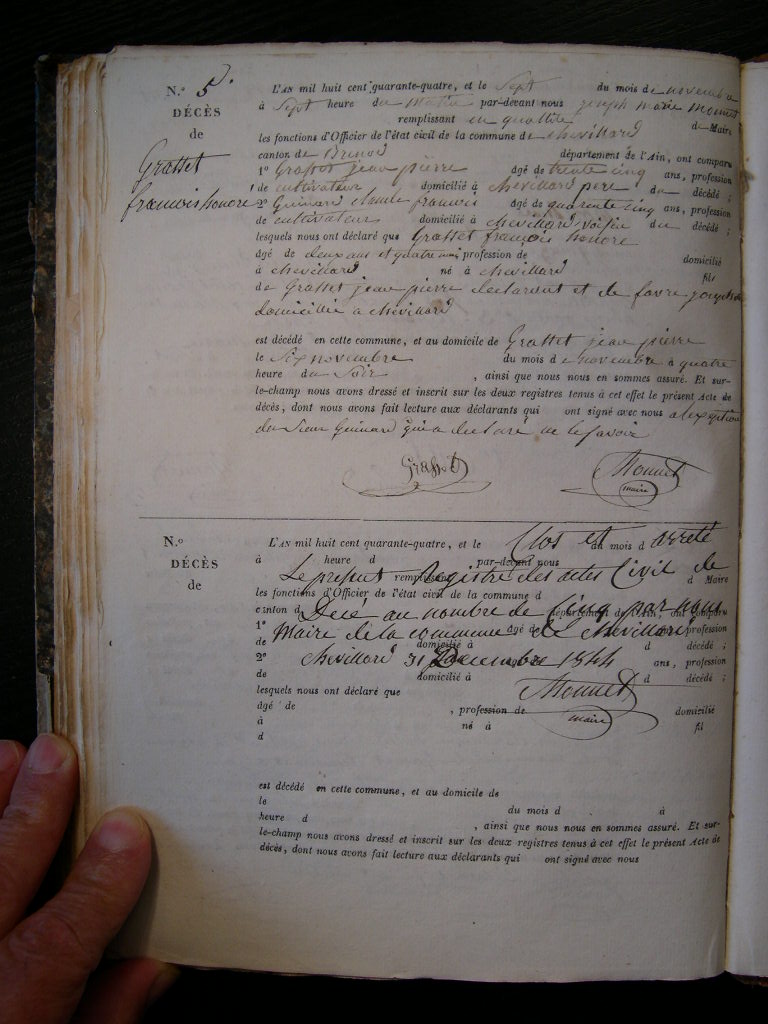 N.º 5.
DÉCÈS
de
Grasset
francois honore
L'AN mil huit cent quarante-quatre, et le Sept du mois de novembre
à Sept heure du Matin par-devant nous joseph marie Monnet
remplissant en qualitté de Maire
les fonctions d'Officier de l'état civil de la commune de chevillard
canton de Brenod département de l'Ain, ont comparu
1º Grasset jean pierre âgé de trente cinq ans, profession
de cultivateur domicilié à chevillard pere du décédé ;
2º Guinard claude francois âgé de quarente cinq ans, profession
de cultivateur domicilié à chevillard voisin du décédé ;
lesquels nous ont déclaré que Grasset françois honore
âgé de deux ans et quatre mois profession de domicilié
à chevillard né à chevillard fils
de Grasset jean pierre declarent et de favre
domicillié a chevillard
est décédé en cette commune, et au domicile de Grasset jean pierre
le Six novembre du mois de novembre à quatre
heure du Soir , ainsi que nous nous en sommes assuré. Et sur-
le-champ nous avons dressé et inscrit sur les deux registres tenus à cet effet le présent Acte de
décès, dont nous avons fait lecture aux déclarants qui ont signé avec nous a lexeption
du Sieur Guinard qui a declaré ne le savoir
Grasset Monnet
maire
N.º
DÉCÈS
de
L'AN mil huit cent quarante-quatre, et le Clos et du mois d arreté
à heure d par-devant nous
Le present remplissant Registre des actes Civil de d Maire
les fonctions d'Officier de l'état civil de la commune d
canton d Décé au nombre de Cinq par nous département de l'Ain, ont comparu
1º Maire de la commune âgé de de Chevillard profession
de domicilié à d décédé ;
2º Chevillard 31 Decembre 1844 ans, profession
de domicilié à d décédé ;
lesquels nous ont déclaré que Monnet
âgé de , profession de maire domicilié
à né à fil
d
est décédé en cette commune, et au domicile de
le du mois d à
heure d , ainsi que nous nous en sommes assuré. Et sur-
le-champ nous avons dressé et inscrit sur les deux registres tenus à cet effet le présent Acte de
décès, dont nous avons fait lecture aux déclarants qui ont signé avec nous